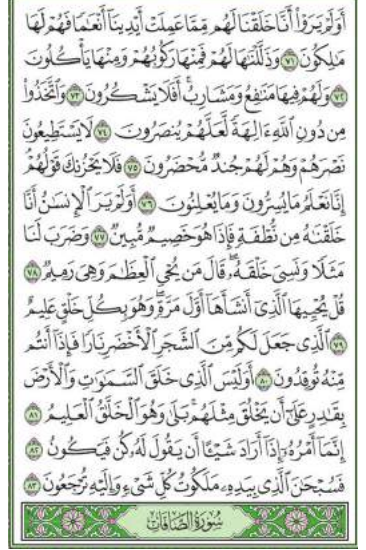 أَوَلَمْ يَرَوْا۟ أَنَّا خَلَقْنَا لَهُم مِّمَّا عَمِلَتْ أَيْدِينَآ أَنْعَٰمًا فَهُمْ لَهَا
مَٰلِكُونَ ٧١ وَذَلَّلْنَٰهَا لَهُمْ فَمِنْهَا رَكُوبُهُمْ وَمِنْهَا يَأْكُلُونَ
٧٢ وَلَهُمْ فِيهَا مَنَٰفِعُ وَمَشَارِبُ ۖ أَفَلَا يَشْكُرُونَ ٧٣ وَٱتَّخَذُوا۟
مِن دُونِ ٱللَّهِ ءَالِهَةً لَّعَلَّهُمْ يُنصَرُونَ ٧٤ لَا يَسْتَطِيعُونَ
نَصْرَهُمْ وَهُمْ لَهُمْ جُندٌ مُّحْضَرُونَ ٧٥ فَلَا يَحْزُنكَ قَوْلُهُمْ ۘ
إِنَّا نَعْلَمُ مَا يُسِرُّونَ وَمَا يُعْلِنُونَ ٧٦ أَوَلَمْ يَرَ ٱلْإِنسَٰنُ أَنَّا
خَلَقْنَٰهُ مِن نُّطْفَةٍ فَإِذَا هُوَ خَصِيمٌ مُّبِينٌ ٧٧ وَضَرَبَ لَنَا
مَثَلًا وَنَسِىَ خَلْقَهُۥ ۖ قَالَ مَن يُحْىِ ٱلْعِظَٰمَ وَهِىَ رَمِيمٌ ٧٨
قُلْ يُحْيِيهَا ٱلَّذِىٓ أَنشَأَهَآ أَوَّلَ مَرَّةٍ ۖ وَهُوَ بِكُلِّ خَلْقٍ عَلِيمٌ
٧٩ ٱلَّذِى جَعَلَ لَكُم مِّنَ ٱلشَّجَرِ ٱلْأَخْضَرِ نَارًا فَإِذَآ أَنتُم
مِّنْهُ تُوقِدُونَ ٨٠ أَوَلَيْسَ ٱلَّذِى خَلَقَ ٱلسَّمَٰوَٰتِ وَٱلْأَرْضَ
بِقَٰدِرٍ عَلَىٰٓ أَن يَخْلُقَ مِثْلَهُم ۚ بَلَىٰ وَهُوَ ٱلْخَلَّٰقُ ٱلْعَلِيمُ ٨١
إِنَّمَآ أَمْرُهُۥٓ إِذَآ أَرَادَ شَيْـًٔا أَن يَقُولَ لَهُۥ كُن فَيَكُونُ ٨٢
فَسُبْحَٰنَ ٱلَّذِى بِيَدِهِۦ مَلَكُوتُ كُلِّ شَىْءٍ وَإِلَيْهِ تُرْجَعُونَ ٨٣
سُورَةُ الصَّافَّاتِ